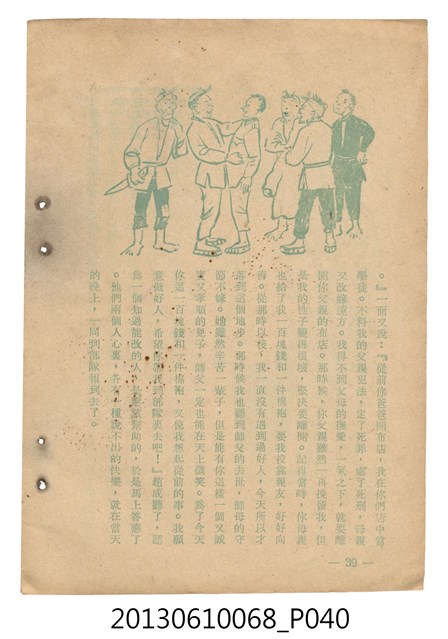 。』一面又說：『從前你爸爸開布店，我在你們店中當
學徒。不料我的父親犯法，定了死罪，處了死刑，母親
又改嫁遠方。我得不到父母的撫愛，一氣之下，就要離
開你父親的布店。那時候，你父親雖然一再挽留我，但
是我的性子變得很壞，堅決要離開。記得當時，你母親
也給了我一百塊錢和一件棉袍，要我投靠親友，好好向
善。從那時以後，我一直沒有遇到過好人，今天所以才
落到這個地步。那時候我也聽到師父的去世，師母的守
節不嫁。她雖然辛苦一輩子，但是能有你這樣一個又誠
實又孝順的兒子，師父一定也能在天上微笑。為了今天
你這一百塊錢和一件棉袍，又使我想起從前的事。我願
意做好人，希望你帶我到部隊裏去吧！』趙成聽了，認
為一個知過能改的人，是應該幫助的，於是馬上答應了
。他們兩個人心裏，各有一種說不出的快樂，就在當天
的晚上，一同到部隊報到去了。
— 39 —
20130610068_P040